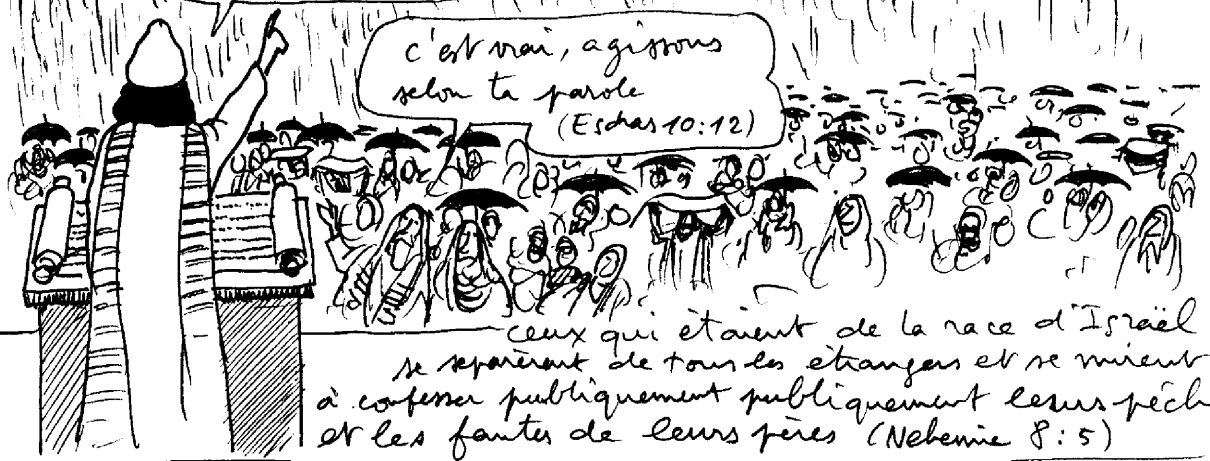 c'est vrai, agissons
selon ta parole
(Esdras 10:12)
ceux qui étaient de la race d'Israël
se séparèrent de tous les étrangers et se mirent
à confesser publiquement publiquement leurs péch
et les fautes de leurs pères (Nehemie 8:5)